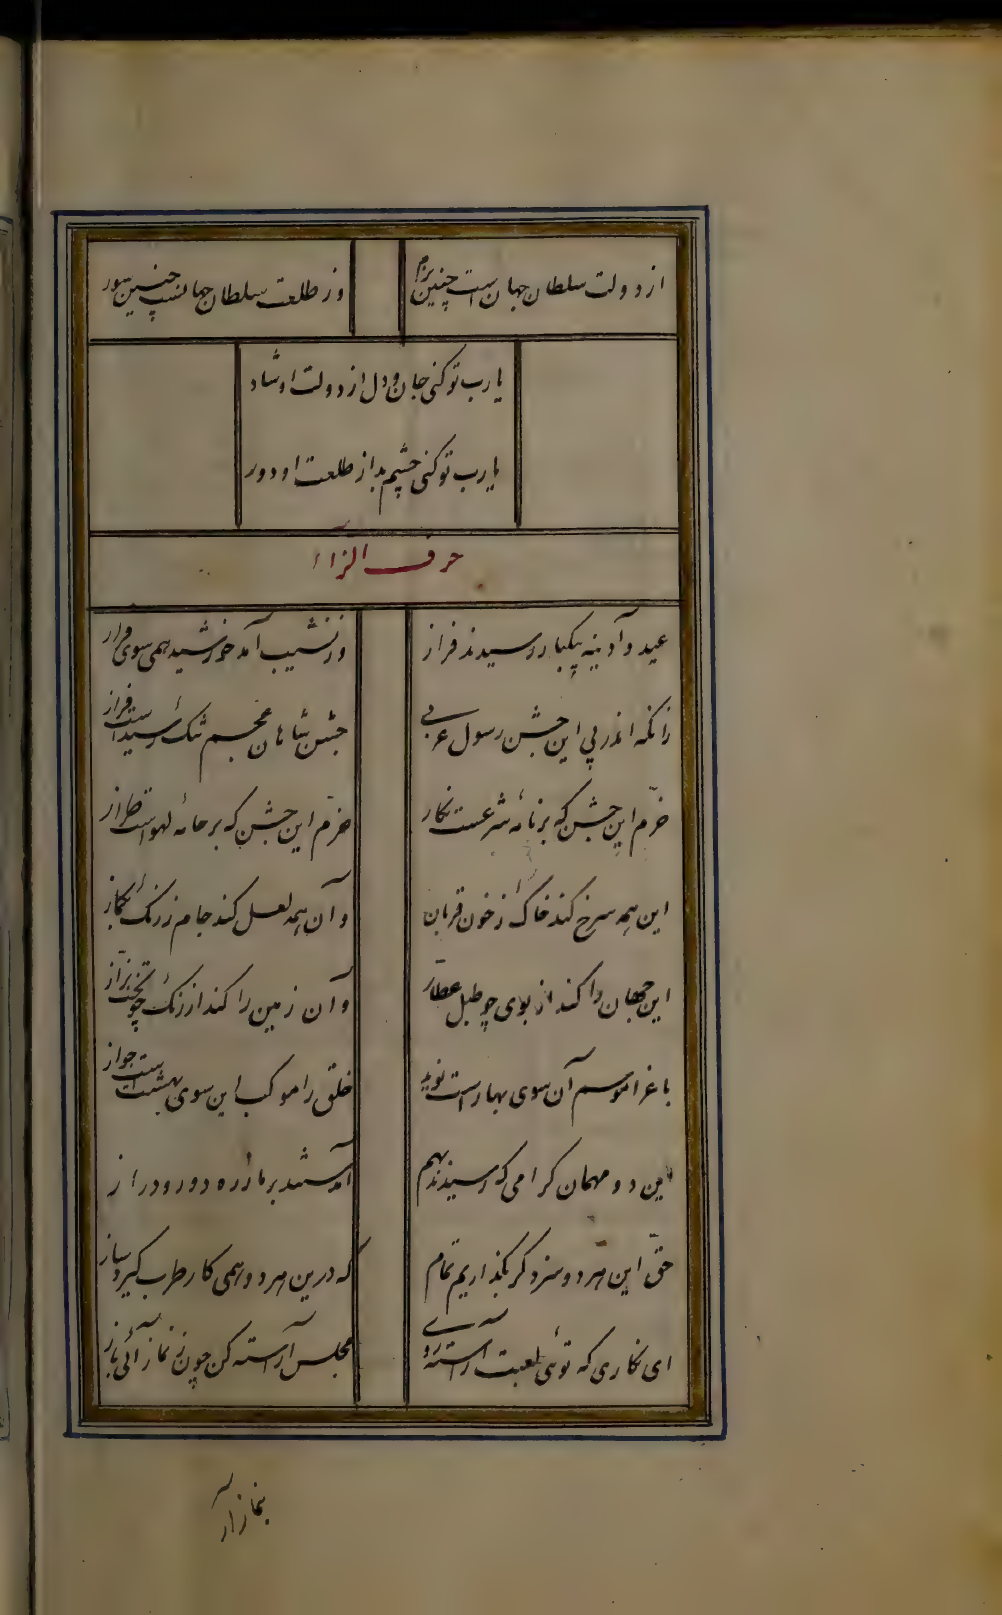 از دولت سلطان جهان است چنین بزم
وز طلعت سلطان جهانست چنین سور
یارب تو کنی جان و دل از دولت او شاد
یارب تو کنی چشم بد از طلعت او دور
حرف الزاء
عید و آدینه بیکبار رسیدند فراز
وز نشیب آمد خورشید همی سوی فراز
زانکه اندر پی این جشن رسول عربی
جشن شاهان عجم تنک رسیداست فراز
خرّم این جشن که برنامهٔ شرعست نکار
خرّم این جشن که برجامهٔ لهو است طراز
این همه سرخ کند خاک ز خون قربان
وآن همه لعل کند جام ز رنک بکماز
این جهان را کند از بوی چو طبل عطّار
وآن زمین را کند از رنک چو تخت بزّاز
باغرا موسم آن سوی بهار است نوید
خلق را موکب این سوی بهشت است جواز
این دو مهمان کرامی که رسیدند بهم
آمدستند بر ما ز ره دور و دراز
حقّ این هر دو سزد کر بکذاریم تمام
که درین هر دو همی کار طرب کیرد ساز
ای نکاری که توئی لعبت آراسته روی
مجلس آراسته کن چون ز نماز آئی باز
بنماز آر